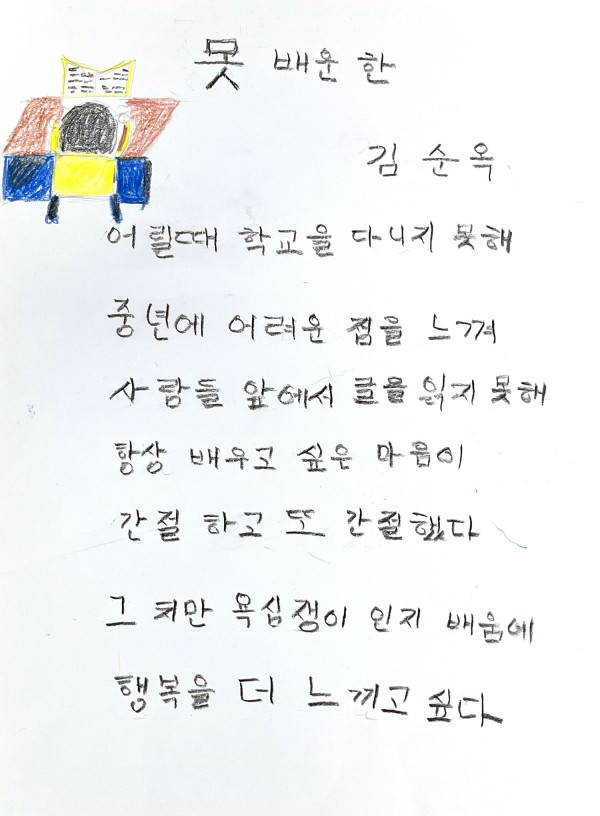 못 배운 한
김순옥
어릴때 학교을 다니지 못해
중년에 어려운 점을 느껴
사람들 앞에서 글을 읽지 못해
항상 배우고 싶은 마음이
간절 하고 또 간절했다
그 치만 욕심쟁이 인지 배움에
행복을 더 느끼고 싶다